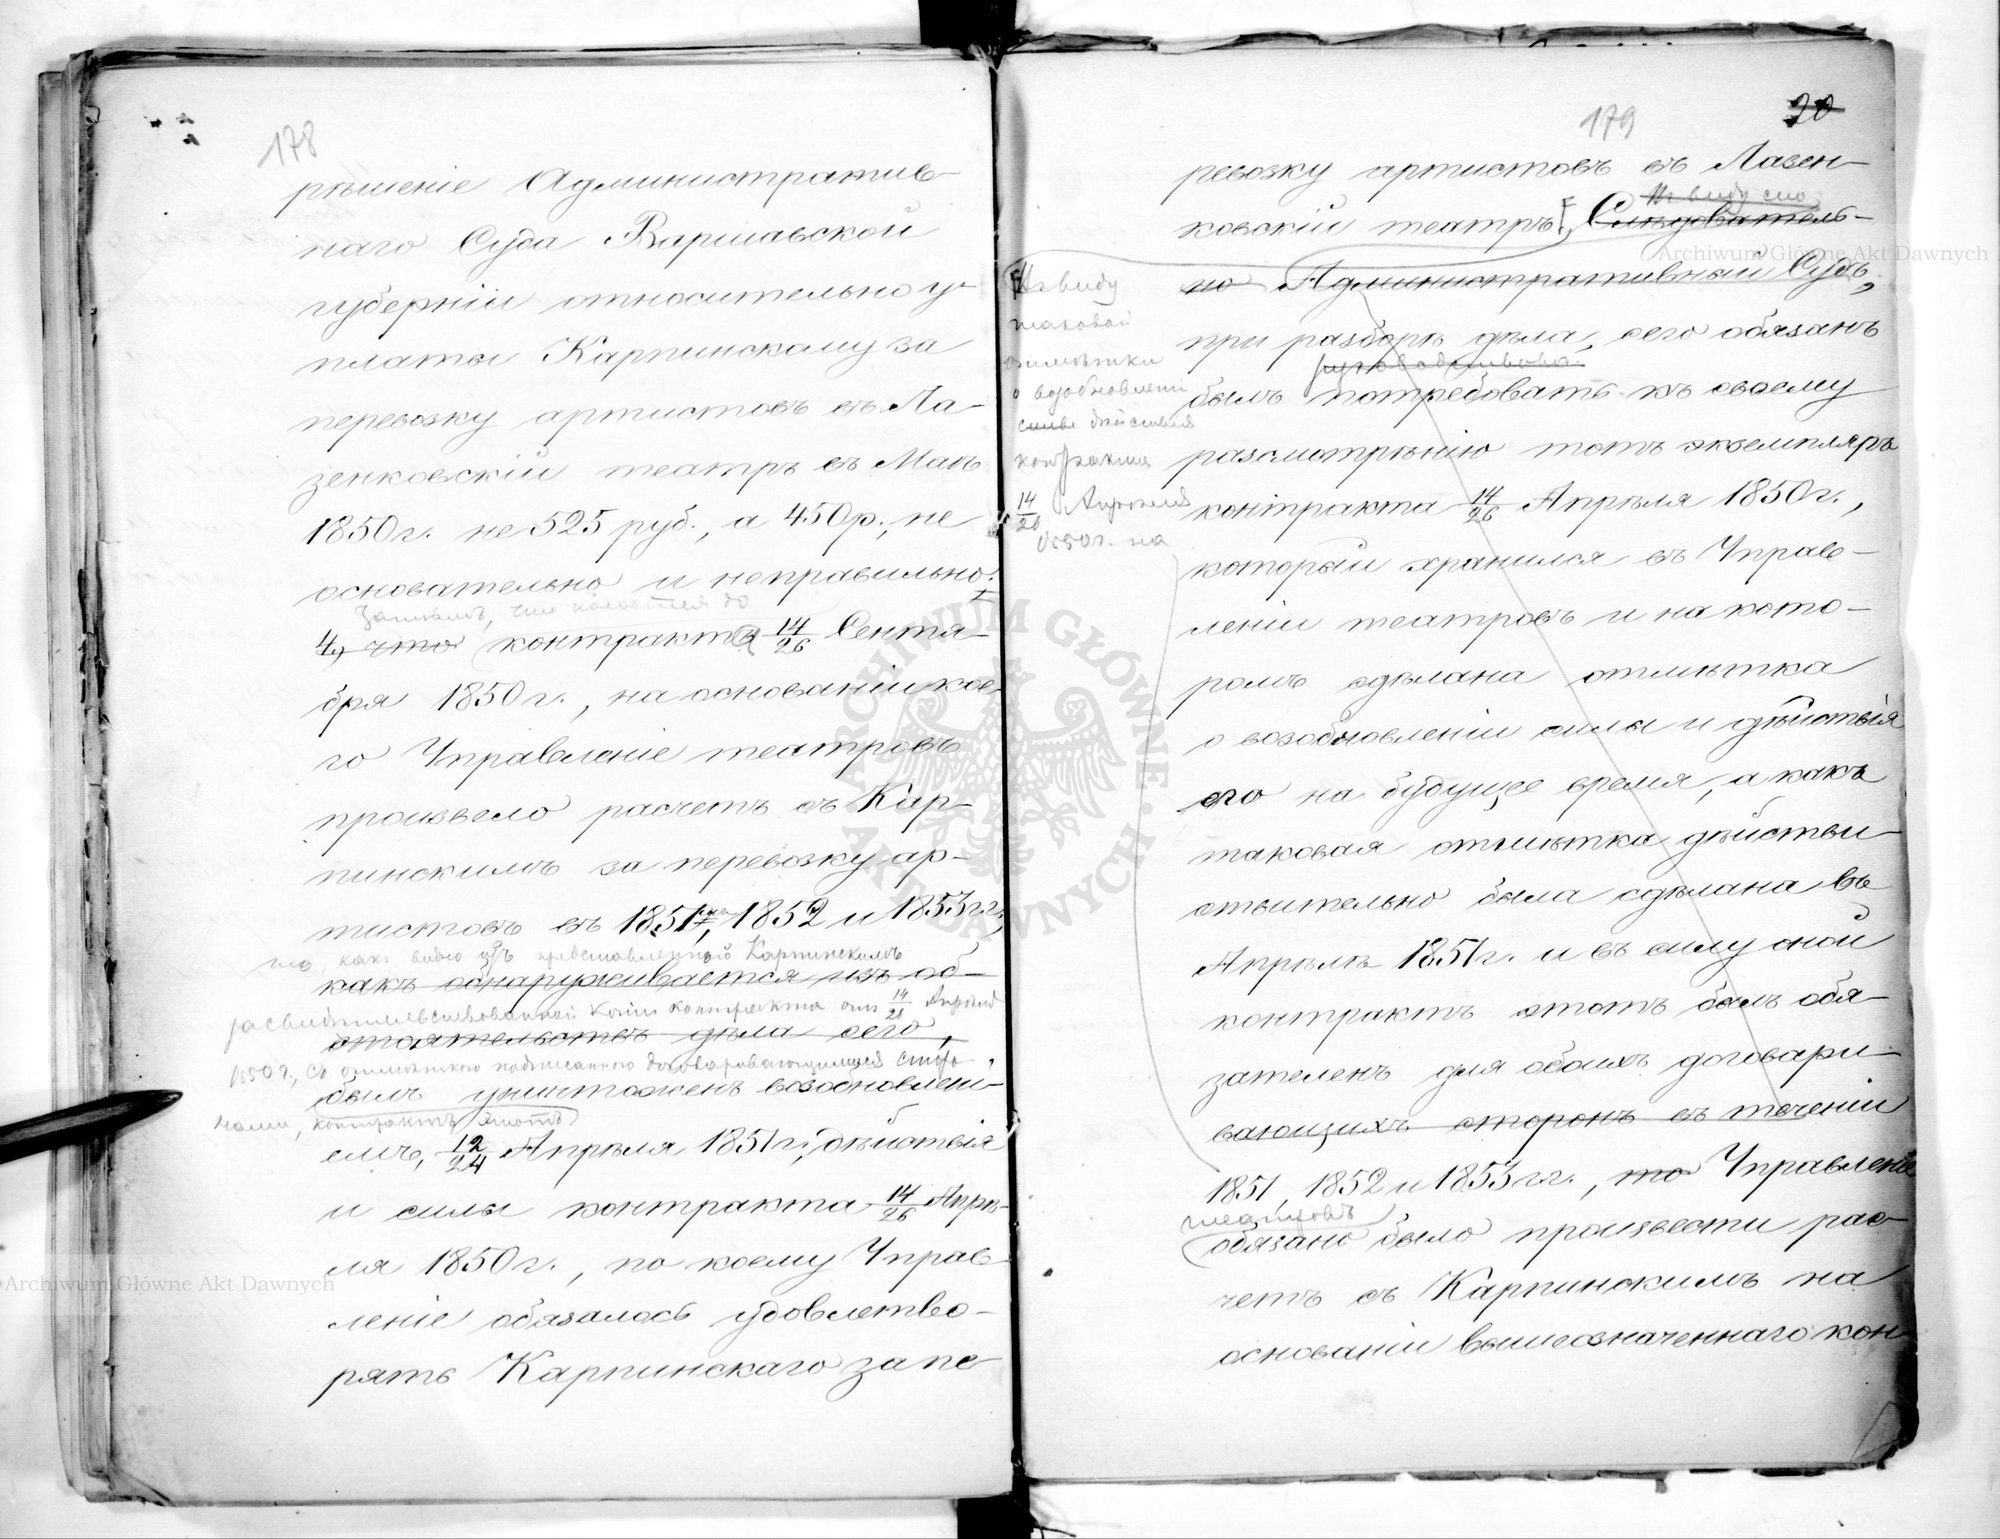 178
рѣшеніе Административ-
наго Суда Варшавской
губерніи относительно у-
платы Карпинскому за
перевозку артистовъ въ Ла-
зенковскій театръ въ Маѣ
1850 г. не 525 руб., а 450 р., не
основательно и неправильно.
Затѣмъ, что касается до
4, что контракта 14/26 Сентя-
бря 1850 г., на основаніи кое-
го Управленіе театровъ
произвело расчетъ съ Кар-
пинскимъ за перевозку ар-
тистовъ въ 1851, 1852 и 1853 гг.,
то, какъ видно изъ представленной Карпинскимъ
какъ обнаруживается изъ об-
засвидѣтельствованной копіи контракта отъ 14/26 Апрѣля
стоятельствъ дѣла сего,
1850 г., съ отмѣткою подписанною договаривающимися сторо-
былъ уничтоженъ возобновлені-
нами, контрактъ этотъ
емъ, 12/24 Апрѣля 1851 г., дѣйствія
и силы контракта 14/26 Апрѣ-
ля 1850 г., по коему Управ-
леніе обязалось удовлетво-
рять Карпинскаго за пе-
179
20
ревозку артистовъ въ Лазен-
ковскій театръ. Слѣдователь-
но Административный Судъ,
при разборѣ дѣла, сего обязанъ
былъ потребовать къ своему
разсмотрѣнію тотъ экземпляръ
контракта 14/26 Апрѣля 1850 г.,
который хранился въ Управ-
леніи театровъ и на кото-
ромъ сдѣлана отмѣтка
о возобновленіи силы и дѣйствія
его на будущее время, а какъ
таковая отмѣтка дѣйстви-
ствительно была сдѣлана въ
Апрѣлѣ 1851 г. и въ силу оной
контрактъ этотъ былъ обя-
зателенъ для обоихъ договари-
вающихъ сторонъ въ теченіи
1851, 1852 и 1853 гг., то Управленіе
театровъ
обязано было произвести рас-
четъ съ Карпинскимъ на
основаніи вышеозначеннаго кон-
Въ виду
таковой
отмѣтки
о возобновленіи
силы дѣйствія
контракта
14/26 Апрѣля
1850 г. на
Archiwum Główne Akt Dawnych
Archiwum Główne Akt Dawnych
ARCHIWUM GŁÓWNE AKT DAWNYCH